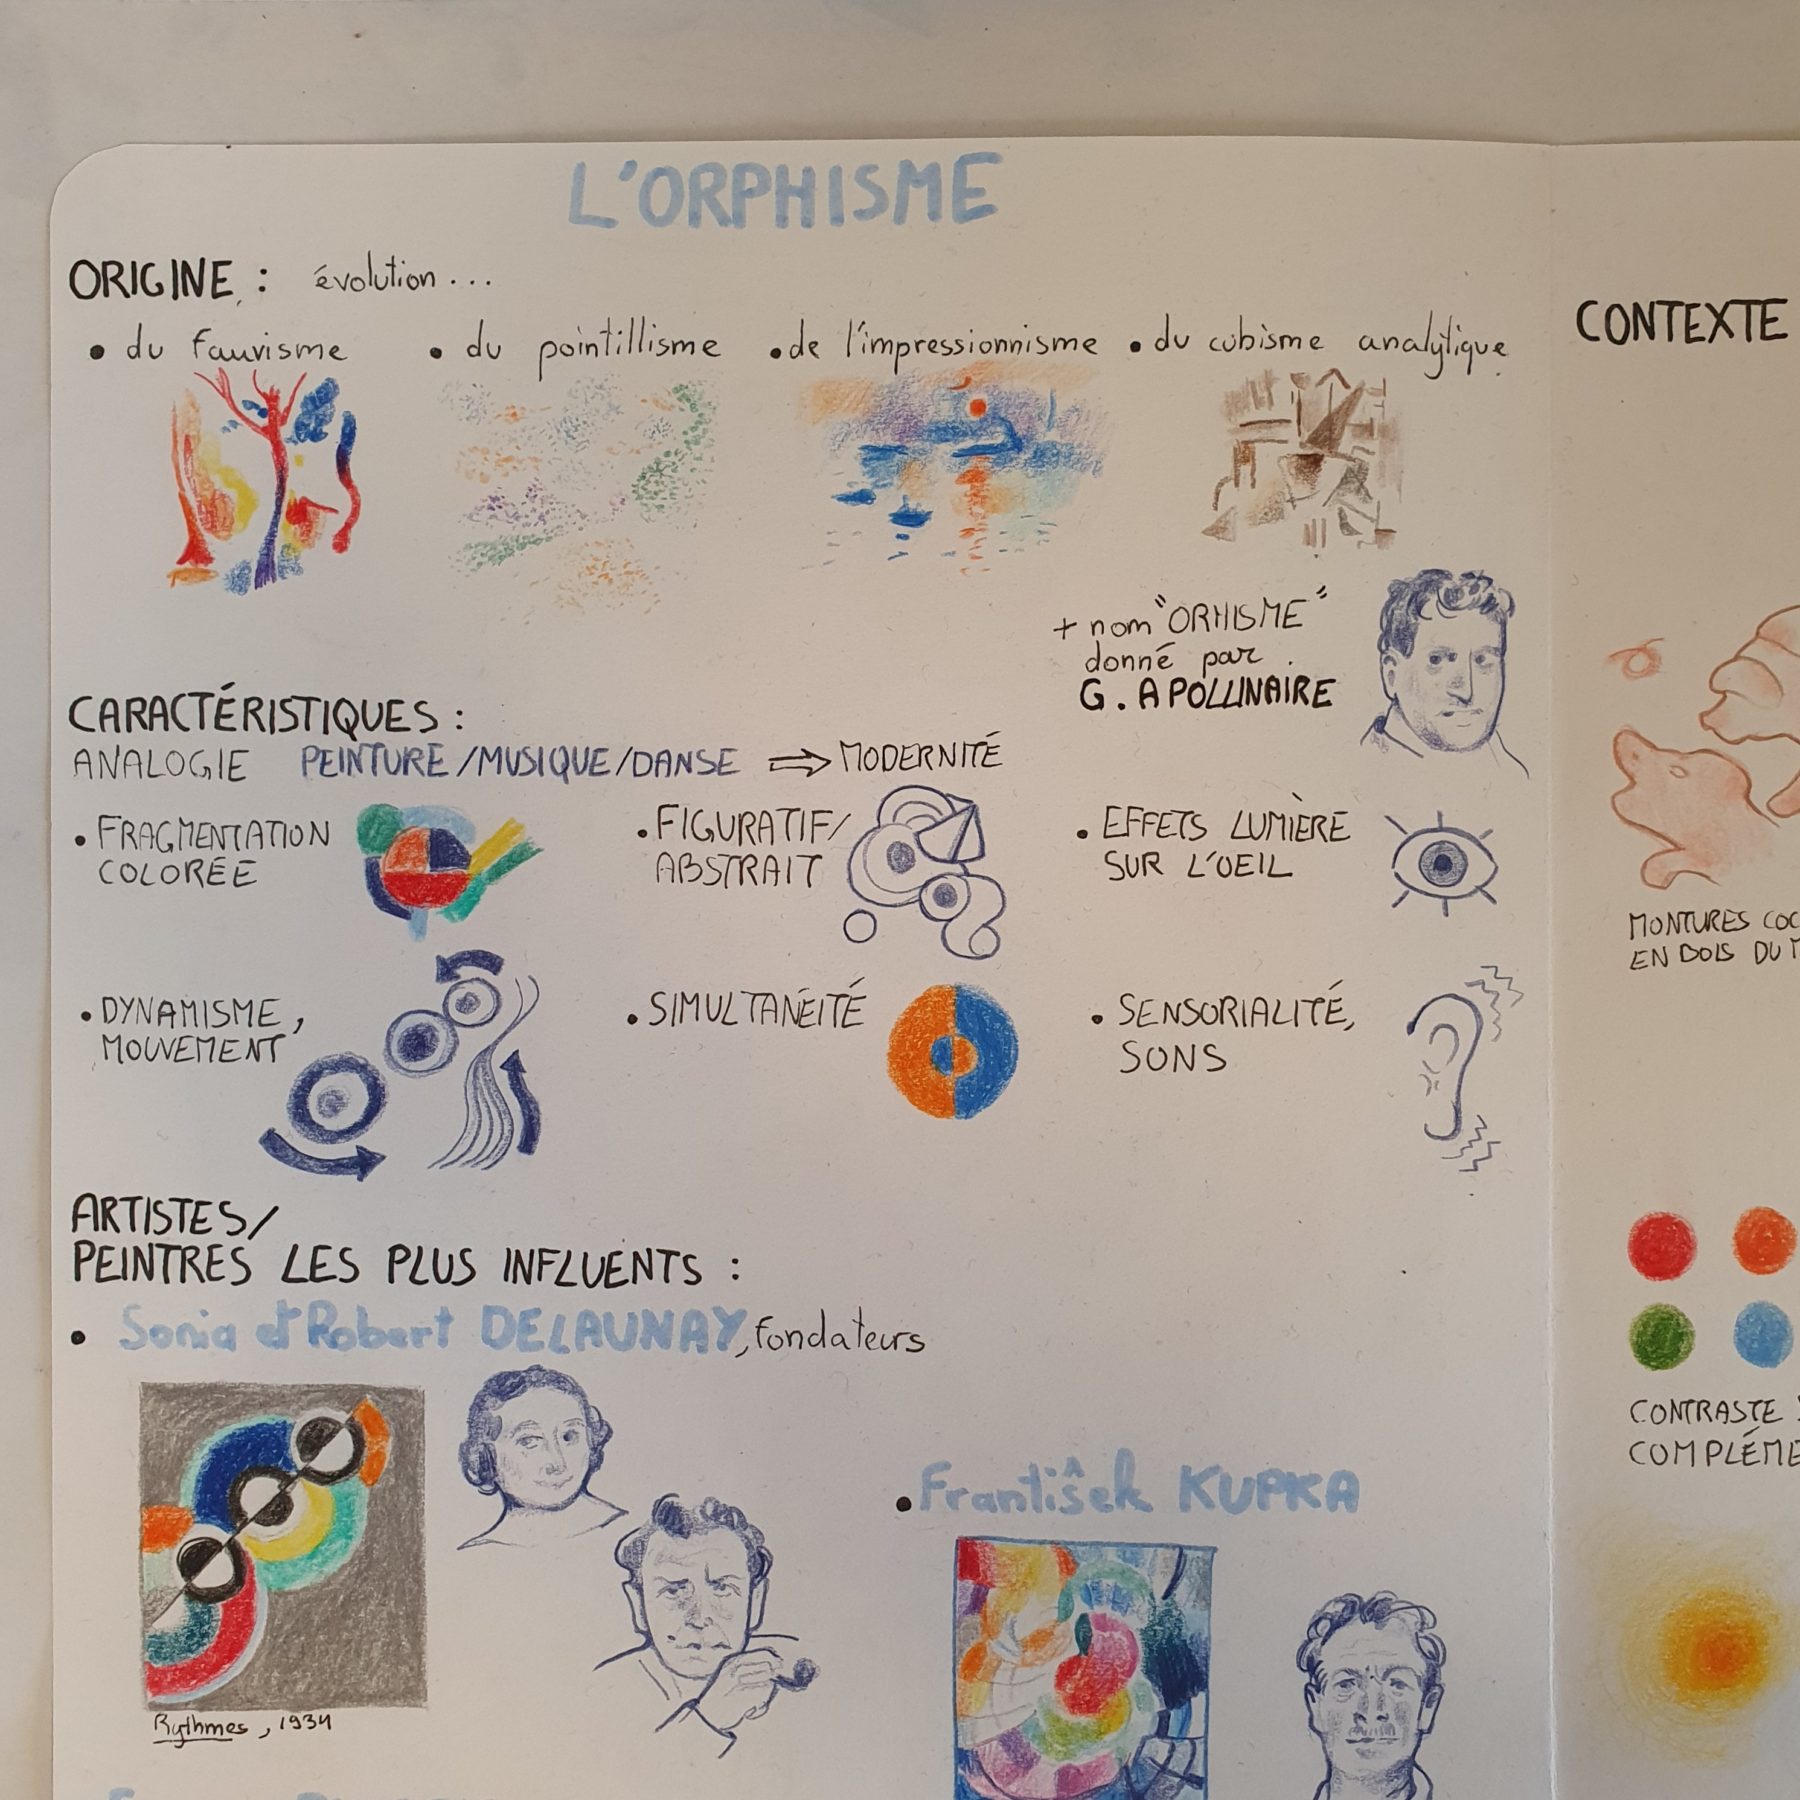 L'ORPHISME
ORIGINE : évolution...
• du fauvisme • du pointillisme • de l'impressionnisme • du cubisme analytique
+ nom "ORHISME"
donné par
G. APOLLINAIRE
CARACTÉRISTIQUES :
ANALOGIE PEINTURE/MUSIQUE/DANSE ⇒ MODERNITÉ
• FRAGMENTATION
COLORÉE
• FIGURATIF/
ABSTRAIT
• EFFETS LUMIÈRE
SUR L'OEIL
• DYNAMISME,
MOUVEMENT
• SIMULTANÉITÉ
• SENSORIALITÉ,
SONS
ARTISTES/
PEINTRES LES PLUS INFLUENTS :
• Sonia et Robert DELAUNAY, fondateurs
Rythmes, 1934
• František KUPKA
CONTEXTE
MONTURES
EN BOIS DU
CONTRASTE